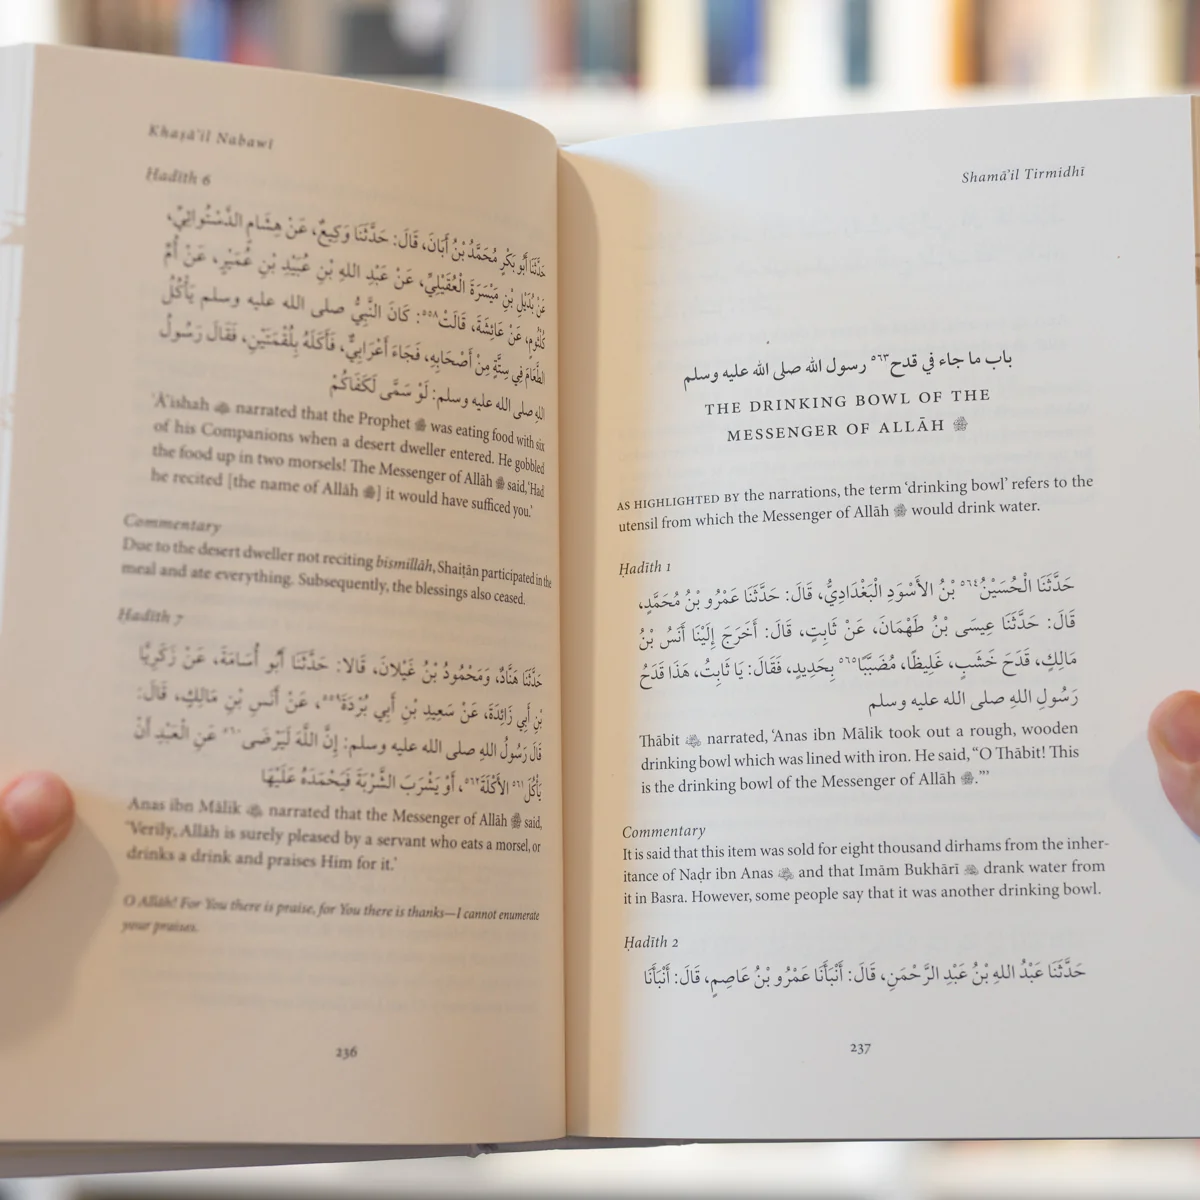 Khaṣā'il Nabawī
Ḥadīth 6
حَدَّثَنَا أَبُو بَكْرٍ مُحَمَّدُ بْنُ أَبَانَ، قَالَ: حَدَّثَنَا وَكِيعٌ، عَنْ هِشَامٍ الدَّسْتُوَائِيِّ،
عَنْ بُدَيْلِ بْنِ مَيْسَرَةَ الْعُقَيْلِيِّ، عَنْ عَبْدِ اللهِ بْنِ عُبَيْدِ بْنِ عُمَيْرٍ، عَنْ أُمِّ
كُلْثُومٍ، عَنْ عَائِشَةَ، قَالَتْ٥٥٨: كَانَ النَّبِيُّ صلى الله عليه وسلم يَأْكُلُ
الطَّعَامَ فِي سِتَّةٍ مِنْ أَصْحَابِهِ، فَجَاءَ أَعْرَابِيٌّ، فَأَكَلَهُ بِلُقْمَتَيْنِ، فَقَالَ رَسُولُ
اللهِ صلى الله عليه وسلم: لَوْ سَمَّى لَكَفَاكُمْ
'Ā'ishah ﷺ narrated that the Prophet ﷺ was eating food with six
of his Companions when a desert dweller entered. He gobbled
the food up in two morsels! The Messenger of Allāh ﷺ said, 'Had
he recited [the name of Allāh ﷻ] it would have sufficed you.'
Commentary
Due to the desert dweller not reciting bismillāh, Shaiṭān participated in the
meal and ate everything. Subsequently, the blessings also ceased.
Ḥadīth 7
حَدَّثَنَا هَنَّادٌ، وَمَحْمُودُ بْنُ غَيْلَانَ، قَالَا: حَدَّثَنَا أَبُو أُسَامَةَ، عَنْ زَكَرِيَّا
بْنِ أَبِي زَائِدَةَ، عَنْ سَعِيدِ بْنِ أَبِي بُرْدَةَ٥٥٩، عَنْ أَنَسِ بْنِ مَالِكٍ، قَالَ:
قَالَ رَسُولُ اللهِ صلى الله عليه وسلم: إِنَّ اللَّهَ لَيَرْضَى٥٦٠ عَنِ الْعَبْدِ أَنْ
يَأْكُلَ٥٦١ الأَكْلَةَ٥٦٢، أَوْ يَشْرَبَ الشَّرْبَةَ فَيَحْمَدَهُ عَلَيْهَا
Anas ibn Mālik narrated that the Messenger of Allāh ﷺ said,
'Verily, Allāh is surely pleased by a servant who eats a morsel, or
drinks a drink and praises Him for it.'
O Allāh! For You there is praise, for You there is thanks—I cannot enumerate
your praises.
236
Shamā'il Tirmidhī
باب ما جاء في قدح٥٦٣ رسول الله صلى الله عليه وسلم
THE DRINKING BOWL OF THE
MESSENGER OF ALLĀH ﷺ
AS HIGHLIGHTED BY the narrations, the term 'drinking bowl' refers to the
utensil from which the Messenger of Allāh ﷺ would drink water.
Ḥadīth 1
حَدَّثَنَا الْحُسَيْنُ٥٦٤ بْنُ الأَسْوَدِ الْبَغْدَادِيُّ، قَالَ: حَدَّثَنَا عَمْرُو بْنُ مُحَمَّدٍ،
قَالَ: حَدَّثَنَا عِيسَى بْنُ طَهْمَانَ، عَنْ ثَابِتٍ، قَالَ: أَخْرَجَ إِلَيْنَا أَنَسُ بْنُ
مَالِكٍ، قَدَحَ خَشَبٍ، غَلِيظًا، مُضَبَّبًا٥٦٥ بِحَدِيدٍ، فَقَالَ: يَا ثَابِتُ، هَذَا قَدَحُ
رَسُولِ اللهِ صلى الله عليه وسلم
Thābit narrated, 'Anas ibn Mālik took out a rough, wooden
drinking bowl which was lined with iron. He said, “O Thābit! This
is the drinking bowl of the Messenger of Allāh ﷺ.”'
Commentary
It is said that this item was sold for eight thousand dirhams from the inher-
itance of Naḍr ibn Anas and that Imām Bukhārī drank water from
it in Basra. However, some people say that it was another drinking bowl.
Ḥadīth 2
حَدَّثَنَا عَبْدُ اللهِ بْنُ عَبْدِ الرَّحْمَنِ، قَالَ: أَنْبَأَنَا عَمْرُو بْنُ عَاصِمٍ، قَالَ: أَنْبَأَنَا
237